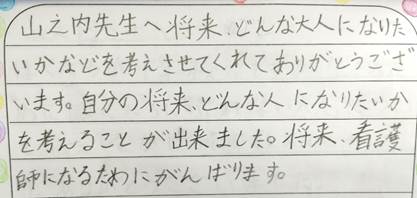 山之内先生へ将来、どんな大人になりた
いかなどを考えさせてくれてありがとうござ
います。自分の将来、どんな人になりたいか
を考えることが出来ました。将来、看護
師になるためにがんばります。